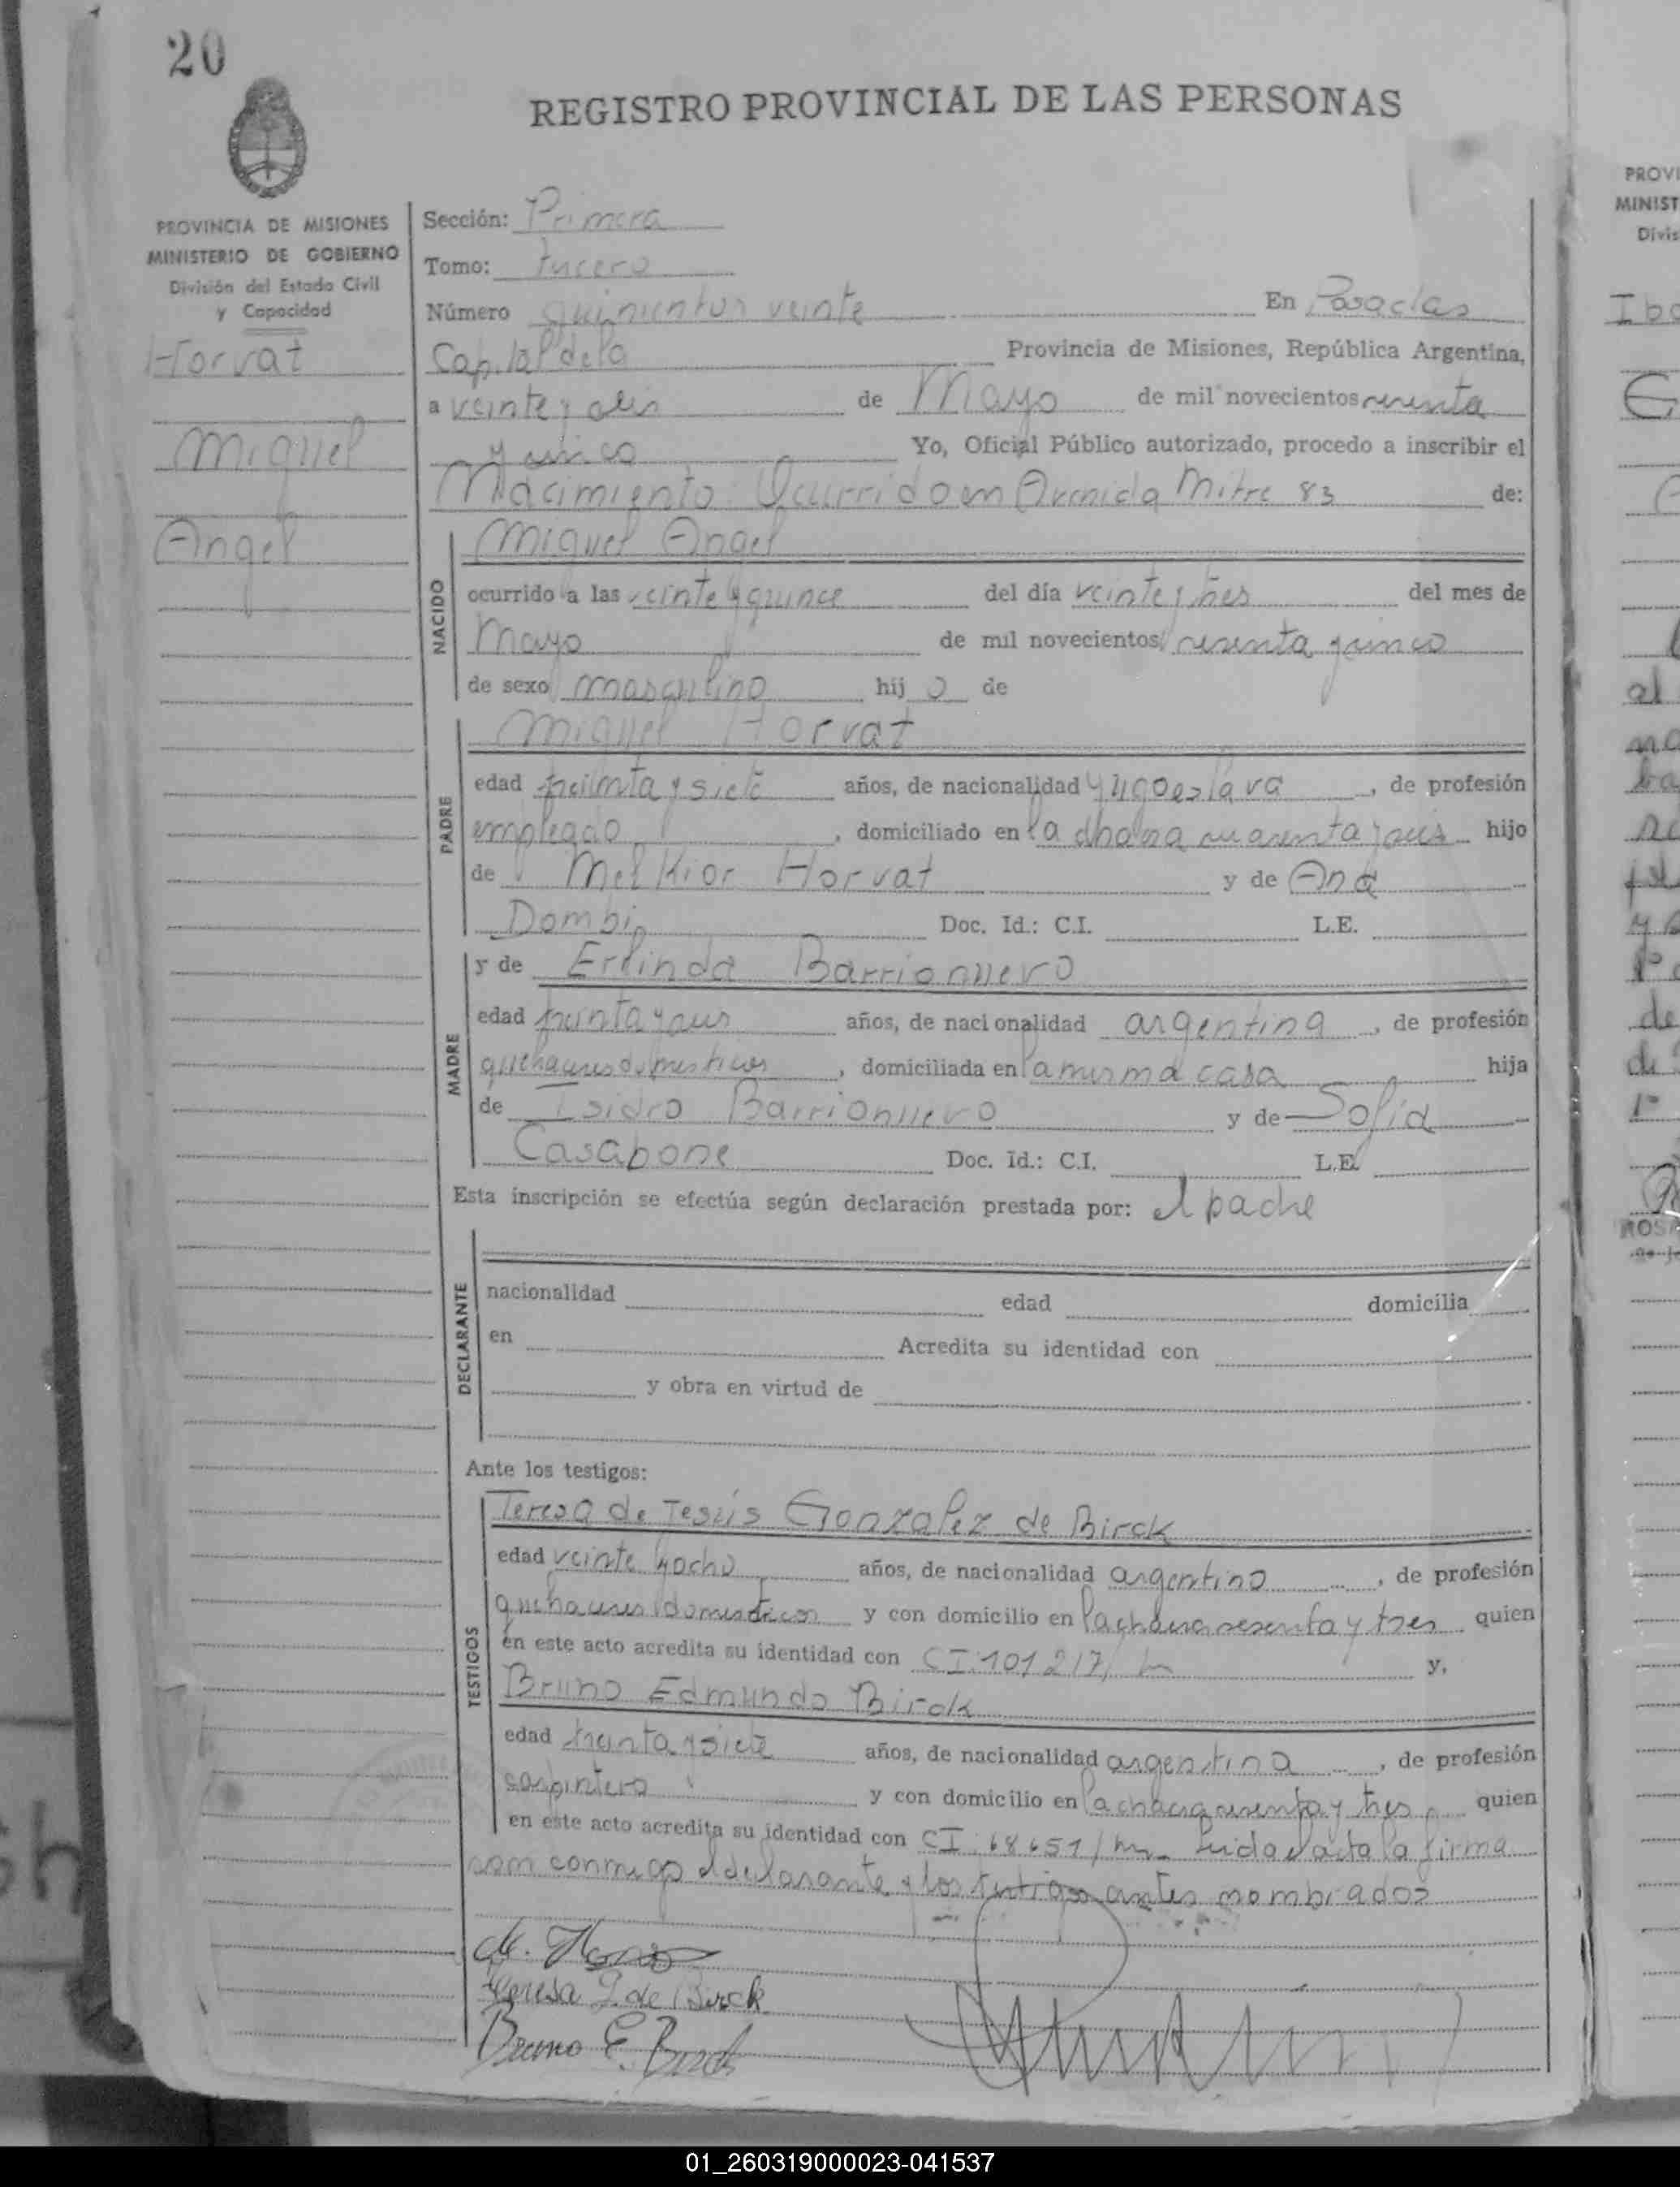 20
REGISTRO PROVINCIAL DE LAS PERSONAS
PROVINCIA DE MISIONES
MINISTERIO DE GOBIERNO
División del Estado Civil
y Capacidad
Horvat
Miguel
Angel
Sección: Primera
Tomo: tercero
Número quinientos veinte En Posadas
Capital de la Provincia de Misiones, República Argentina,
a veinte y seis de Mayo de mil novecientos sesenta
y cinco Yo, Oficial Público autorizado, procedo a inscribir el
Nacimiento Ocurrido en Avenida Mitre 83 de:
NACIDO
Miguel Angel
ocurrido a las veinte y quince del día veinte y tres del mes de
Mayo de mil novecientos sesenta y cinco
de sexo masculino hij o de
PADRE
Miguel Horvat
edad treinta y siete años, de nacionalidad yugoeslava, de profesión
empleado, domiciliado en la hijo
de Melkior Horvat y de Ana
Dombi Doc. Id.: C.I. L.E.
MADRE
y de Erlinda Barrionuevo
edad treinta y años, de nacionalidad argentina, de profesión
quehaceres domesticos, domiciliada en la misma casa hija
de Isidro Barrionuevo y de Sofia
Casabone Doc. Id.: C.I. L.E.
Esta inscripción se efectúa según declaración prestada por: el padre
DECLARANTE
nacionalidad edad domicilia
en Acredita su identidad con
y obra en virtud de
Ante los testigos:
TESTIGOS
Teresa de Jesús Gonzalez de Birck
edad veinte y ocho años, de nacionalidad argentino, de profesión
quehaceres domesticos y con domicilio en la chacra sesenta y tres quien
en este acto acredita su identidad con CI. 101217/ y,
Bruno Edmundo Birck
edad treinta y siete años, de nacionalidad argentina, de profesión
carpintero y con domicilio en la chacra sesenta y tres quien
en este acto acredita su identidad con CI. 68651/ leida el acta la firma
con conmigo el declarante y los testigos antes nombrados
M. Horvat
Teresa G. de Birck
Bruno E. Birck
PROVI
MINIST
Divis
01_260319000023-041537